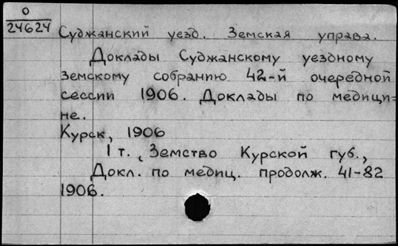 0
24624
Суджанский уезд. Земская управа.
Доклады Суджанскому уездному
земскому собранию 42-й очередной
сессии 1906. Доклады по медици=
не.
Курск, 1906
1 т. (Земство Курской губ.,
Докл. по медиц. продолж. 41-82
1906.